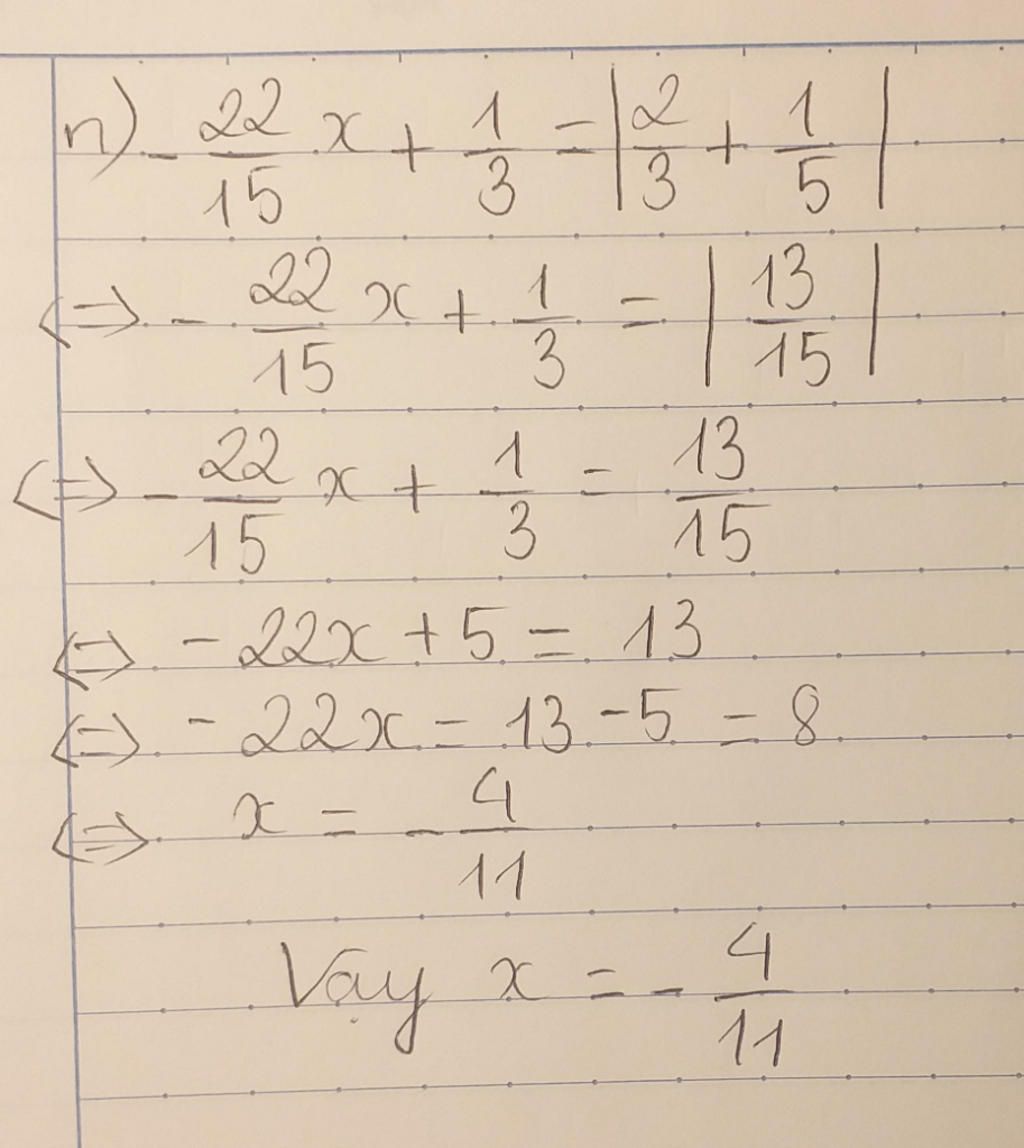 n) - 22/15 x + 1/3 = | 2/3 + 1/5 |
<=> - 22/15 x + 1/3 = | 13/15 |
<=> - 22/15 x + 1/3 = 13/15
<=> - 22x + 5 = 13
<=> - 22x = 13 - 5 = 8
<=> x = - 4/11
Vậy x = - 4/11